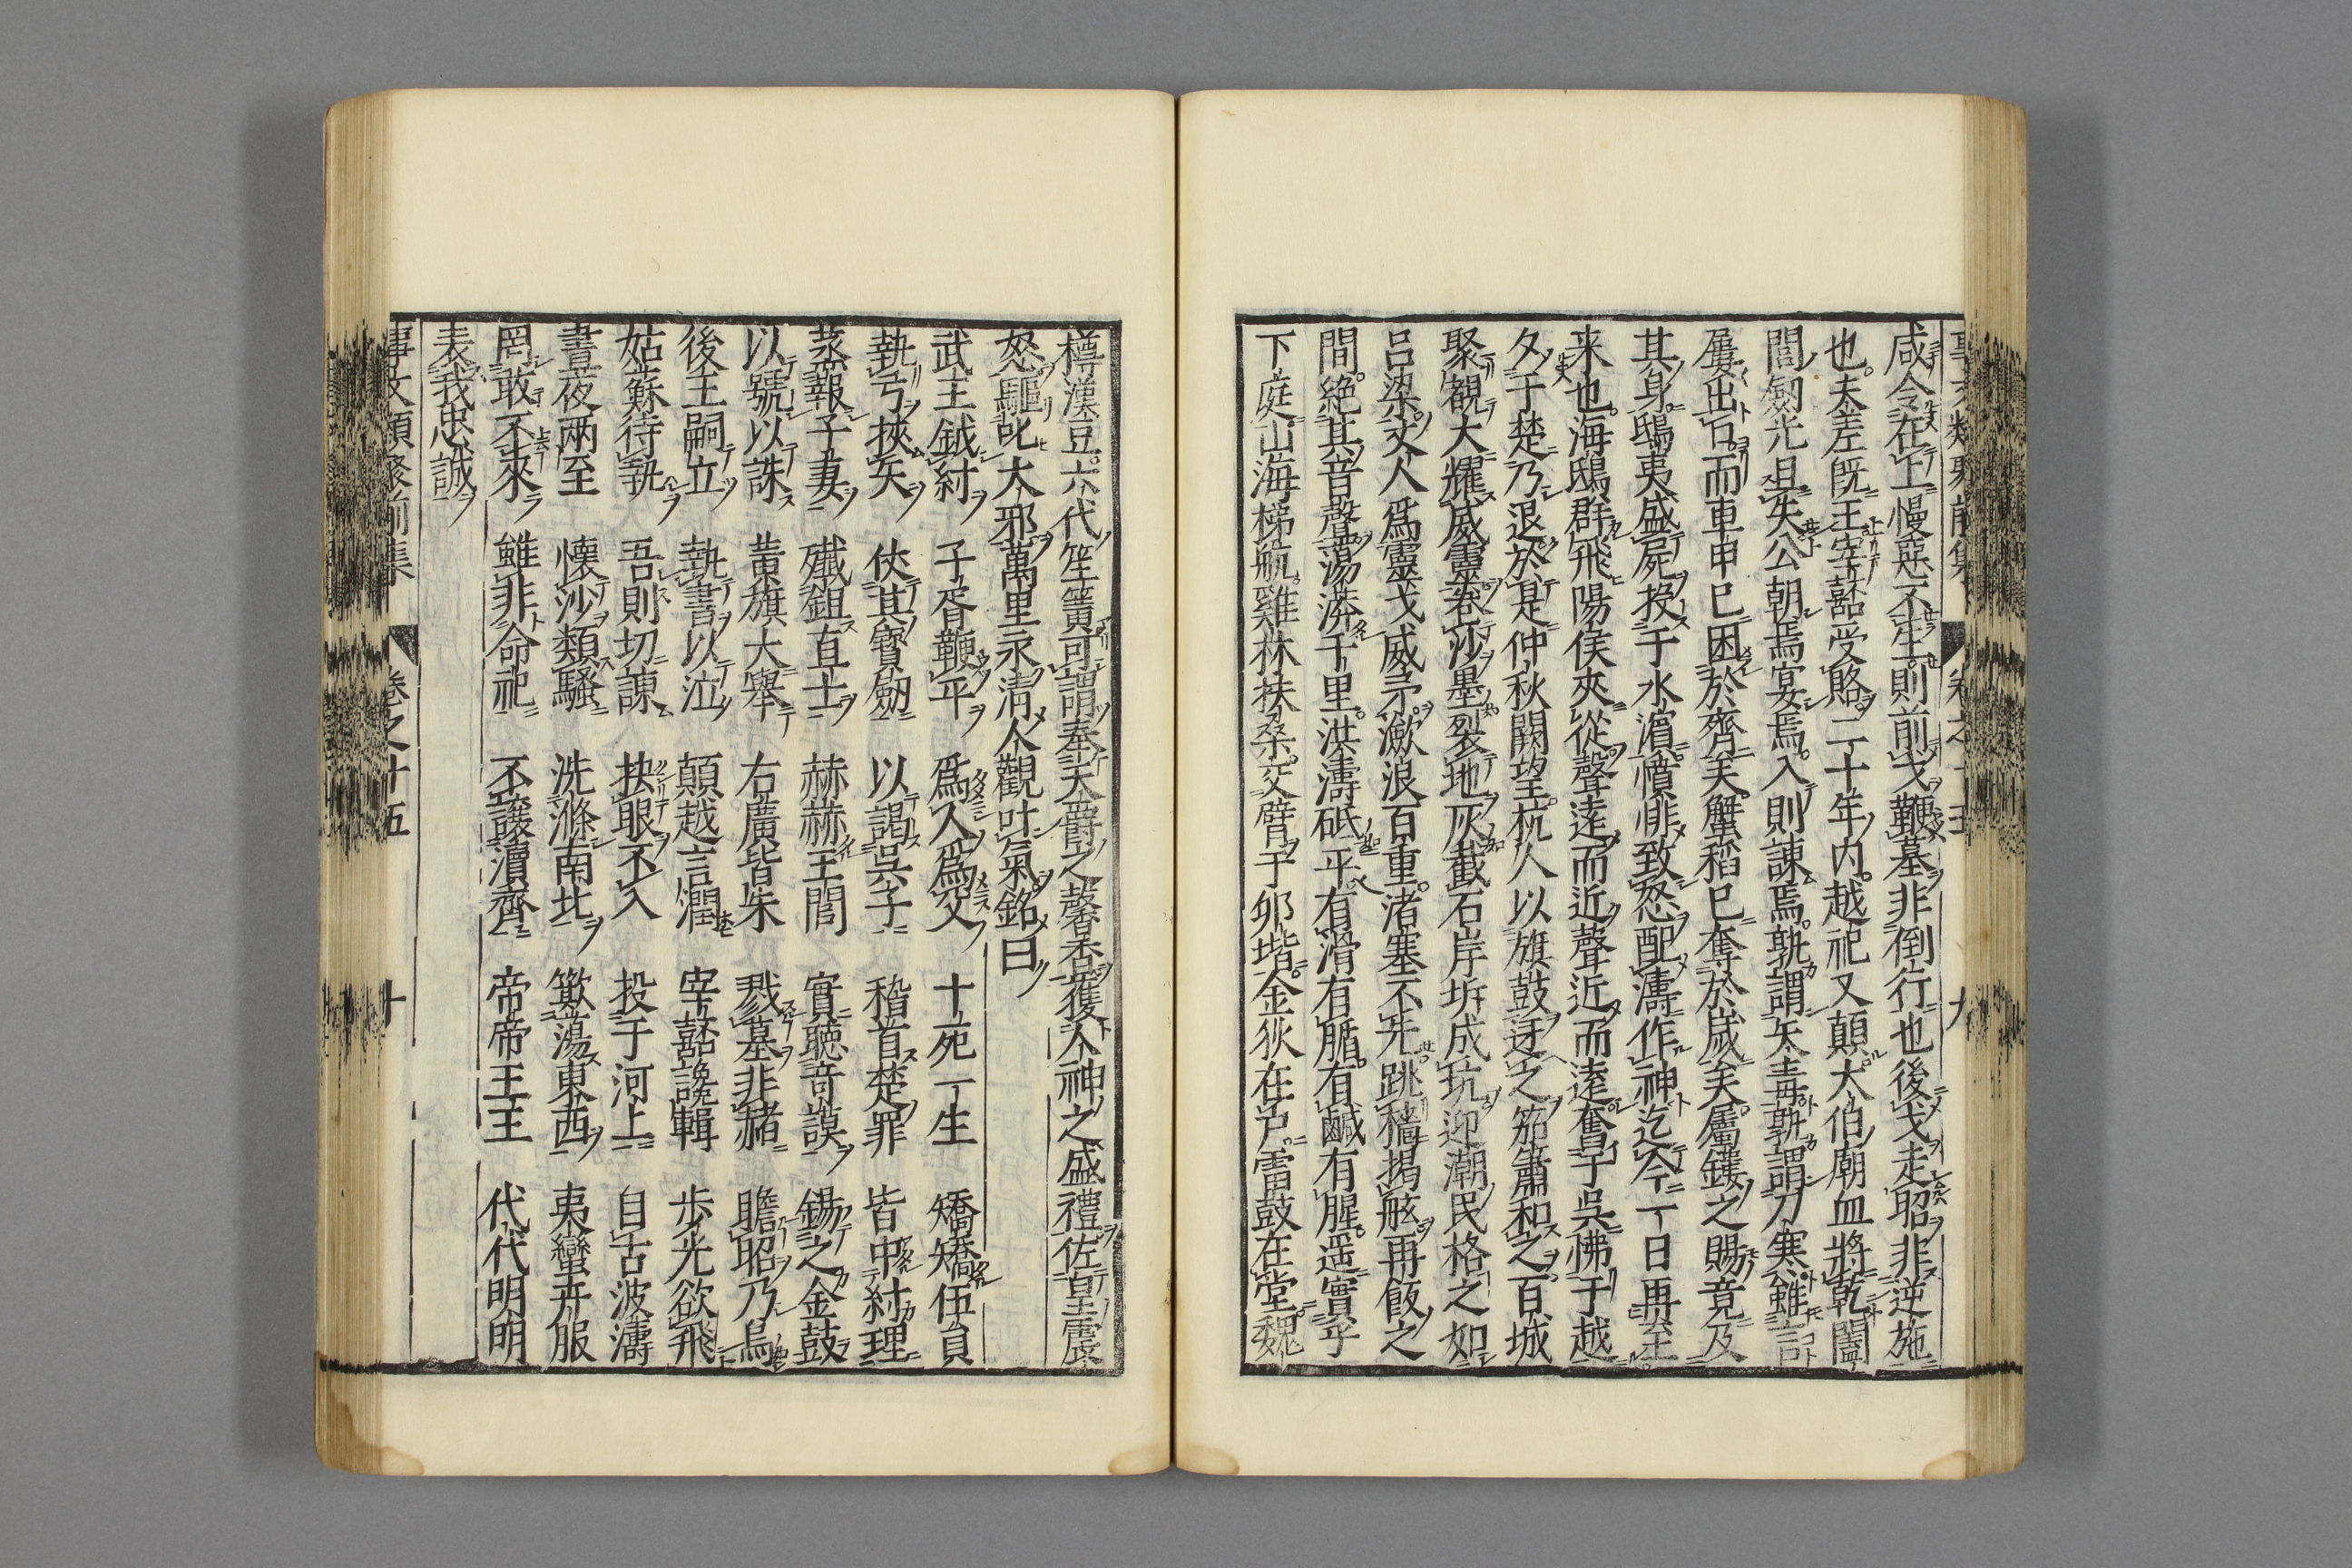 咸令在上慢惡不生則前戈鞭墓非倒行也後戈走昭非逆施
也夫差旣王宰嚭受賂二十年内越祀又顛大伯廟血將乾闔
閭劒光且失公朝焉宴焉入則諫焉孰謂矢毒孰謂刀寒雖言
屢出口而車申已困於齊矣蟹稻已奪於歲矣屬鏤之賜竟及
其身鴟夷盛屍投于水濵憤悱致怒配濤作神迄今一日再至
来也海鴟群飛陽侯夾從聲遠而近聲近而遠奮于吳怫于越
夕于楚乃退於是仲秋闕望杭人以旗鼓迓之笳簫和之百城
聚觀大耀威靈卷沙墨裂地灰截石岸坼成坑迎潮民格之如
呂梁丈人爲靈戈威矛潄浪百重渚塞不先跳檣揭舷再飯之
間絶其音聲蕩漭千里洪濤砥平有滑有腯有鹹有腥遥實乎
下庭山海梯航雞林扶桑交臂于卯堦金狄在戸雷鼓在堂魏
樽漢豆六代笙簧可謂奉天爵之馨香獲人神之盛禮佐皇震
怒驅叱大邪萬里永淸人觀叶氣銘曰
武王鉞紂 子胥鞭平 爲人爲父 十死一生 矯矯伍員
執弓挾矢 伏其寳劒 以謁吳子 稽首楚罪 皆中紂理
蒸報子妻 殲鉏直士 赫赫王閭 實聽竒謨 錫之金鼓
以號以誅 黄旗大舉 右廣皆朱 戮墓非赭 瞻昭乃烏
後王嗣立 執書以泣 顛越言潤 宰嚭讒輯 步光欲飛
姑蘇待執 吾則切諫 抉眼不入 投于河上 自古波濤
晝夜兩至 懐沙類騷 洗滌南北 簸蕩東西 夷蠻卉服
罔敢不來 雖非命祀 不讓瀆齊 帝帝王王 代代明明
表我忠誠
事文類聚前集 卷之十五 十